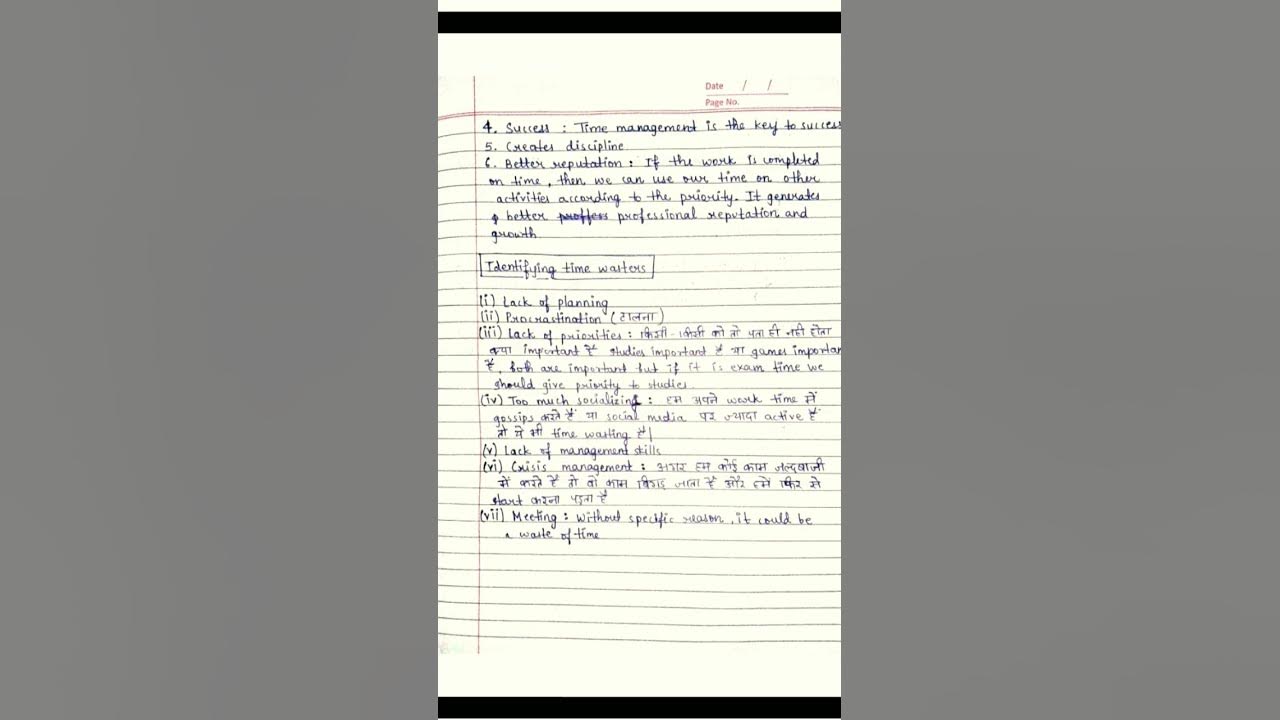 Date / /
Page No.
4. Success : Time management is the key to success
5. Creates discipline
6. Better reputation : If the work is completed
on time, then we can use our time on other
activities according to the priority. It generates
better proffess professional reputation and
growth
Identifying time wasters
(i) Lack of planning
(ii) Procrastination (टालना)
(iii) Lack of priorities : किसी-किसी को तो पता ही नही होता
क्या important है studies important है या games importan
है, both are important but if it is exam time we
should give priority to studies.
(iv) Too much socializing : हम अपने work time में
gossips करते हैं या social media पर ज्यादा active हैं
तो ये भी time wasting है|
(v) Lack of management skills
(vi) Crisis management : अगर हम कोई काम जल्दबाजी
में करते है तो वो काम बिगड़ जाता है और हमे फिर से
start करना पड़ता है
(vii) Meeting : Without specific reason, it could be
a waste of time